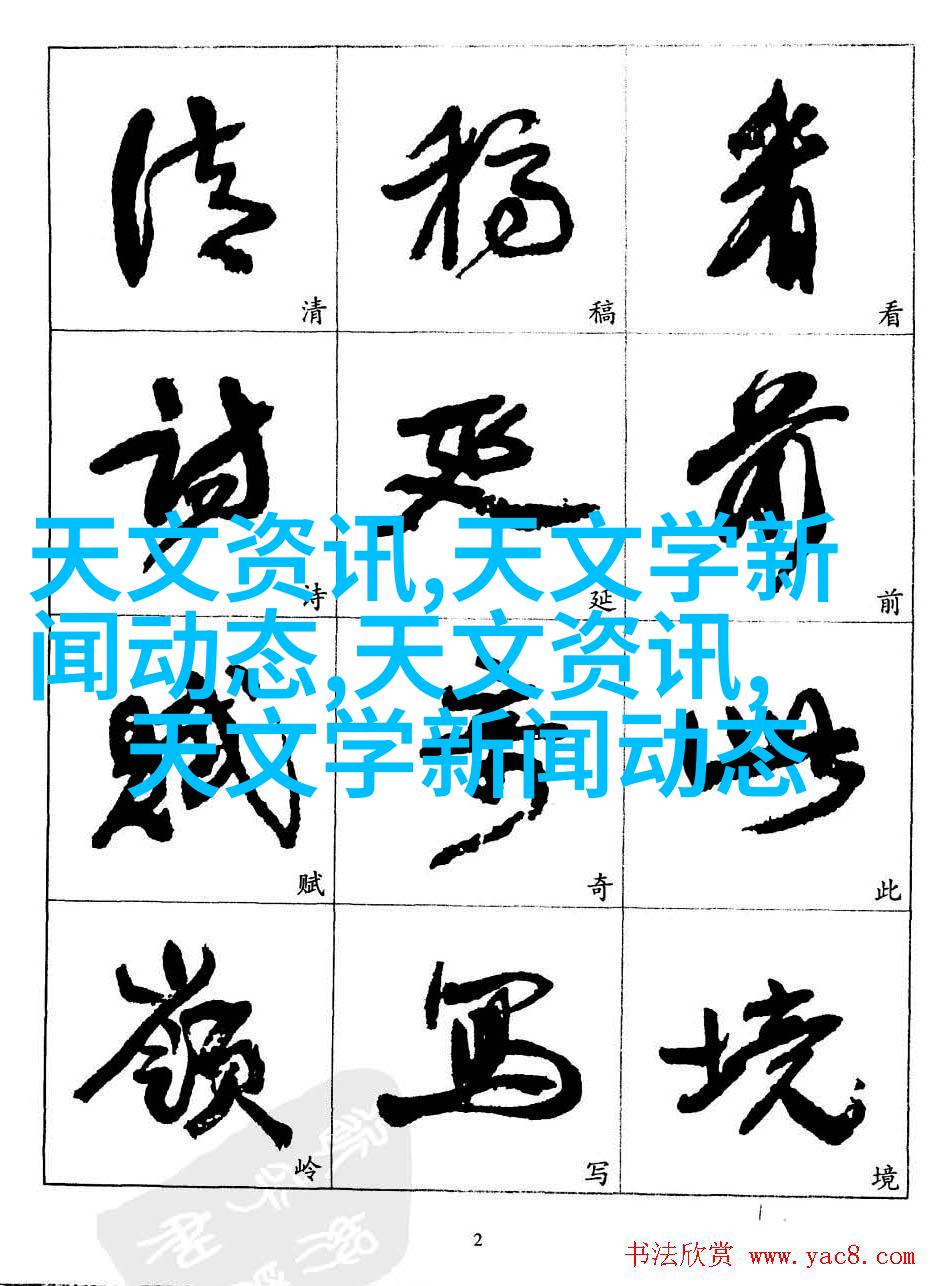 清 稿 看
诗 延 前
天文资讯,天文学新
闻动态,天文资讯,
天文学新闻动态
赋 奇 此
岭 写 境
2
书法欣赏 www.yac8.com